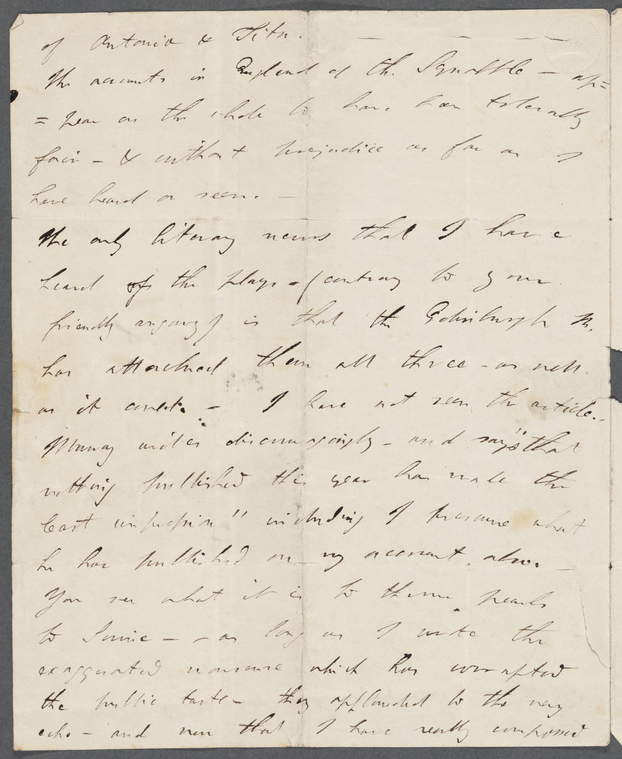 of Antonio & Tita. — — —
The accounts in England of the Squabble – ap=
= pear on the whole to have been tolerably
fair – & without prejudice as far as I
have heard or seen. –
The only literary news that I have
heard of the plays – (contrary to your
friendly augury) is that the Edinburgh R.
has attacked them all three – as well
as it could. – I have not seen the article. –
Murray writes discouragingly – and says "that
nothing published this year has made the
least impression" including I presume what
he has published on my account also. –
You see what it is to throw pearls
to Swine – – as long as I wrote the
exaggerated nonsense which has corrupted
the public taste – they applauded to the very
echo – and now that I have really composed